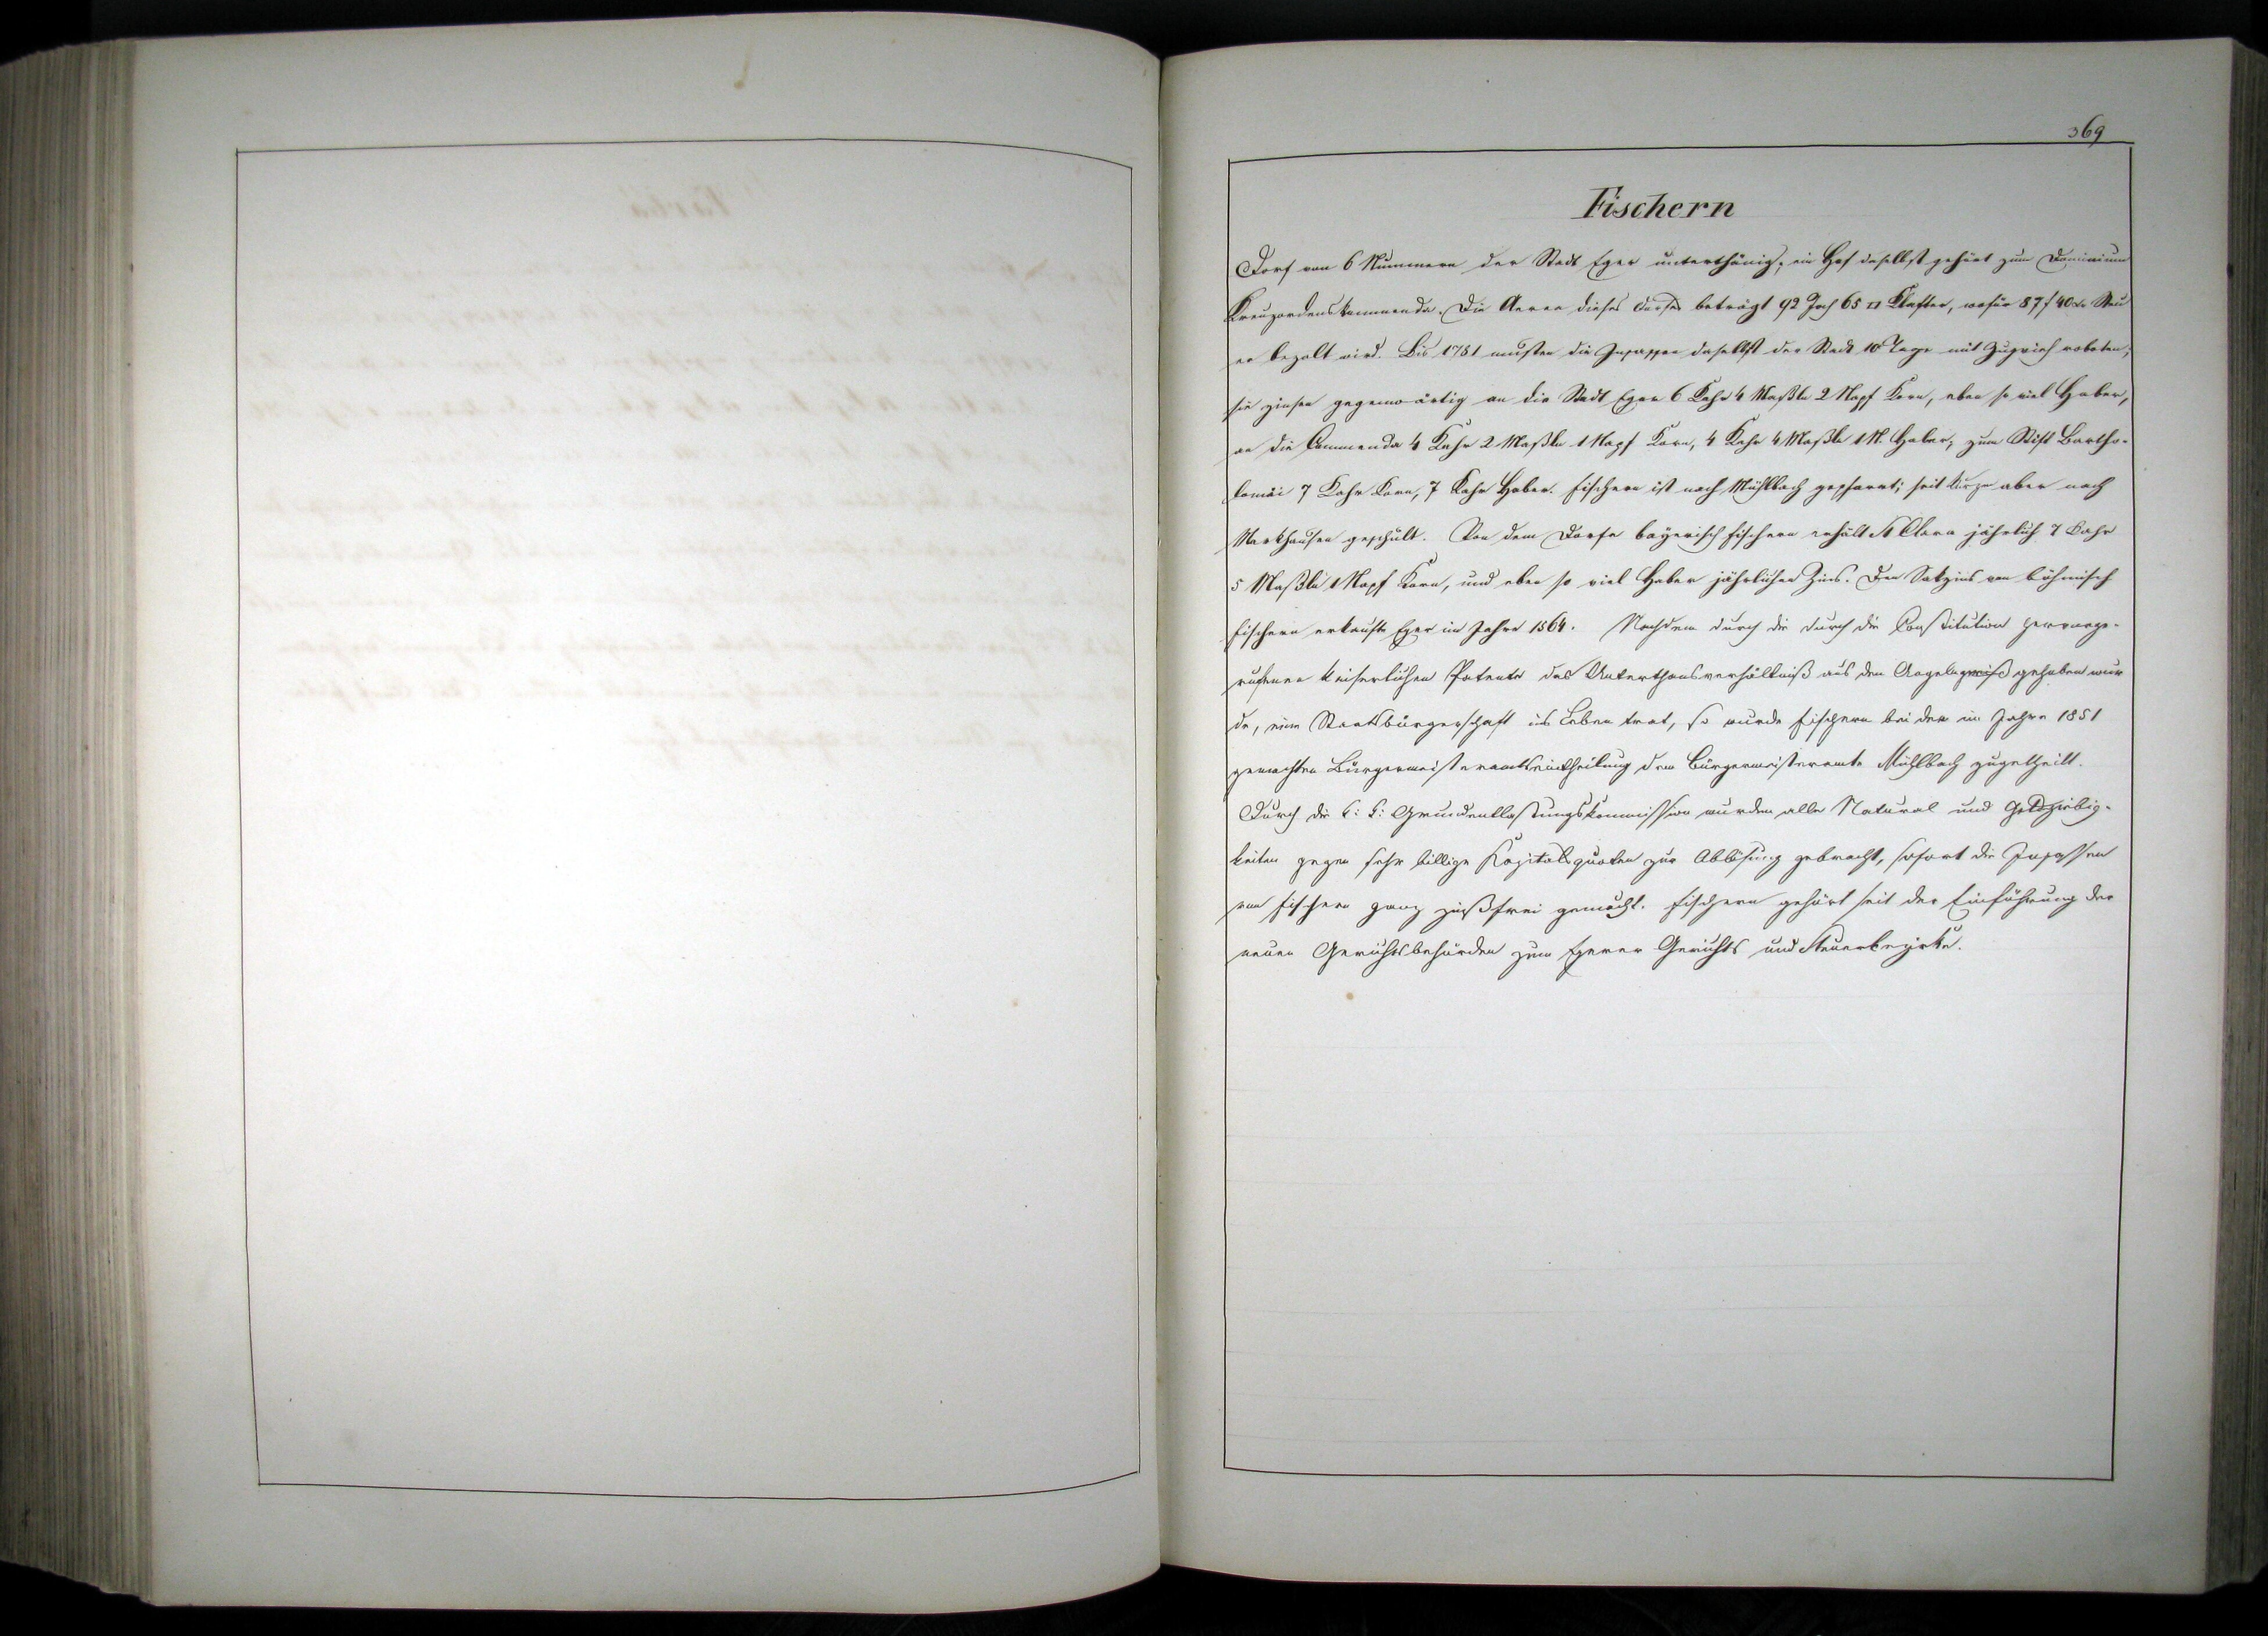 369
Fischern
Dorf von 6 Nummern der Stadt Eger unterthänig, ein Hof daselbst gehört zum Dominium
Kreuzordenskommenda. Die Aerea dieses Dorfes beträgt 92 Joch 65 □ Klafter, wofür 87 f 40 xr Steu
er bezalt wird. Bis 1781 mußten die Insassen daselbst der Stadt 10 Tage mit Zugvieh roboten;
sie zinsen gegenwärtig an die Stadt Eger 6 Kahr 4 Maßln 2 Napf Korn, eben so viel Haber,
an die Commenda 4 Kahr 2 Maßln 1 Napf Korn, 4 Kahr 4 Maßln 1 N. Haber, zum Stift Bartho-
lomäi 7 Kahr Korn, 7 Kahr Haber. Fischern ist nach Mühlbach gepfarrt; seit kurzem aber nach
Markhausen geschult. Von dem Dorfe bayerisch Fischern erhält St Clara jährlich 7 Kahr
5 Maßln 1 Napf Korn, und eben so viel Haber jährlichen Zins. Den Sakzins von böhmisch
Fischern erkaufte Eger im Jahre 1564. Nachdem durch die durch die Constitution hervorge-
rufenen kaiserlichen Patente das Unterthansverhältniß aus den Angeln gehoben wur
de, eine Staatsbürgerschaft ins Leben trat, so wurde Fischern bei der im Jahre 1851
gemachten Bürgermeisteramtseintheilung dem Bürgermeisteramte Mühlbach zugetheilt.
Durch die k: k: Grundentlastungskommission wurden alle Natural und Geldgiebig-
keiten gegen sehr billige Kapitalsquoten zur Ablösung gebracht, sofort die Insassen
von Fischern ganz zinßfrei gemacht. Fischern gehört seit der Einführung der
neuen Gerichtsbehörden zum Egerer Gerichts und Steuerbezirke.